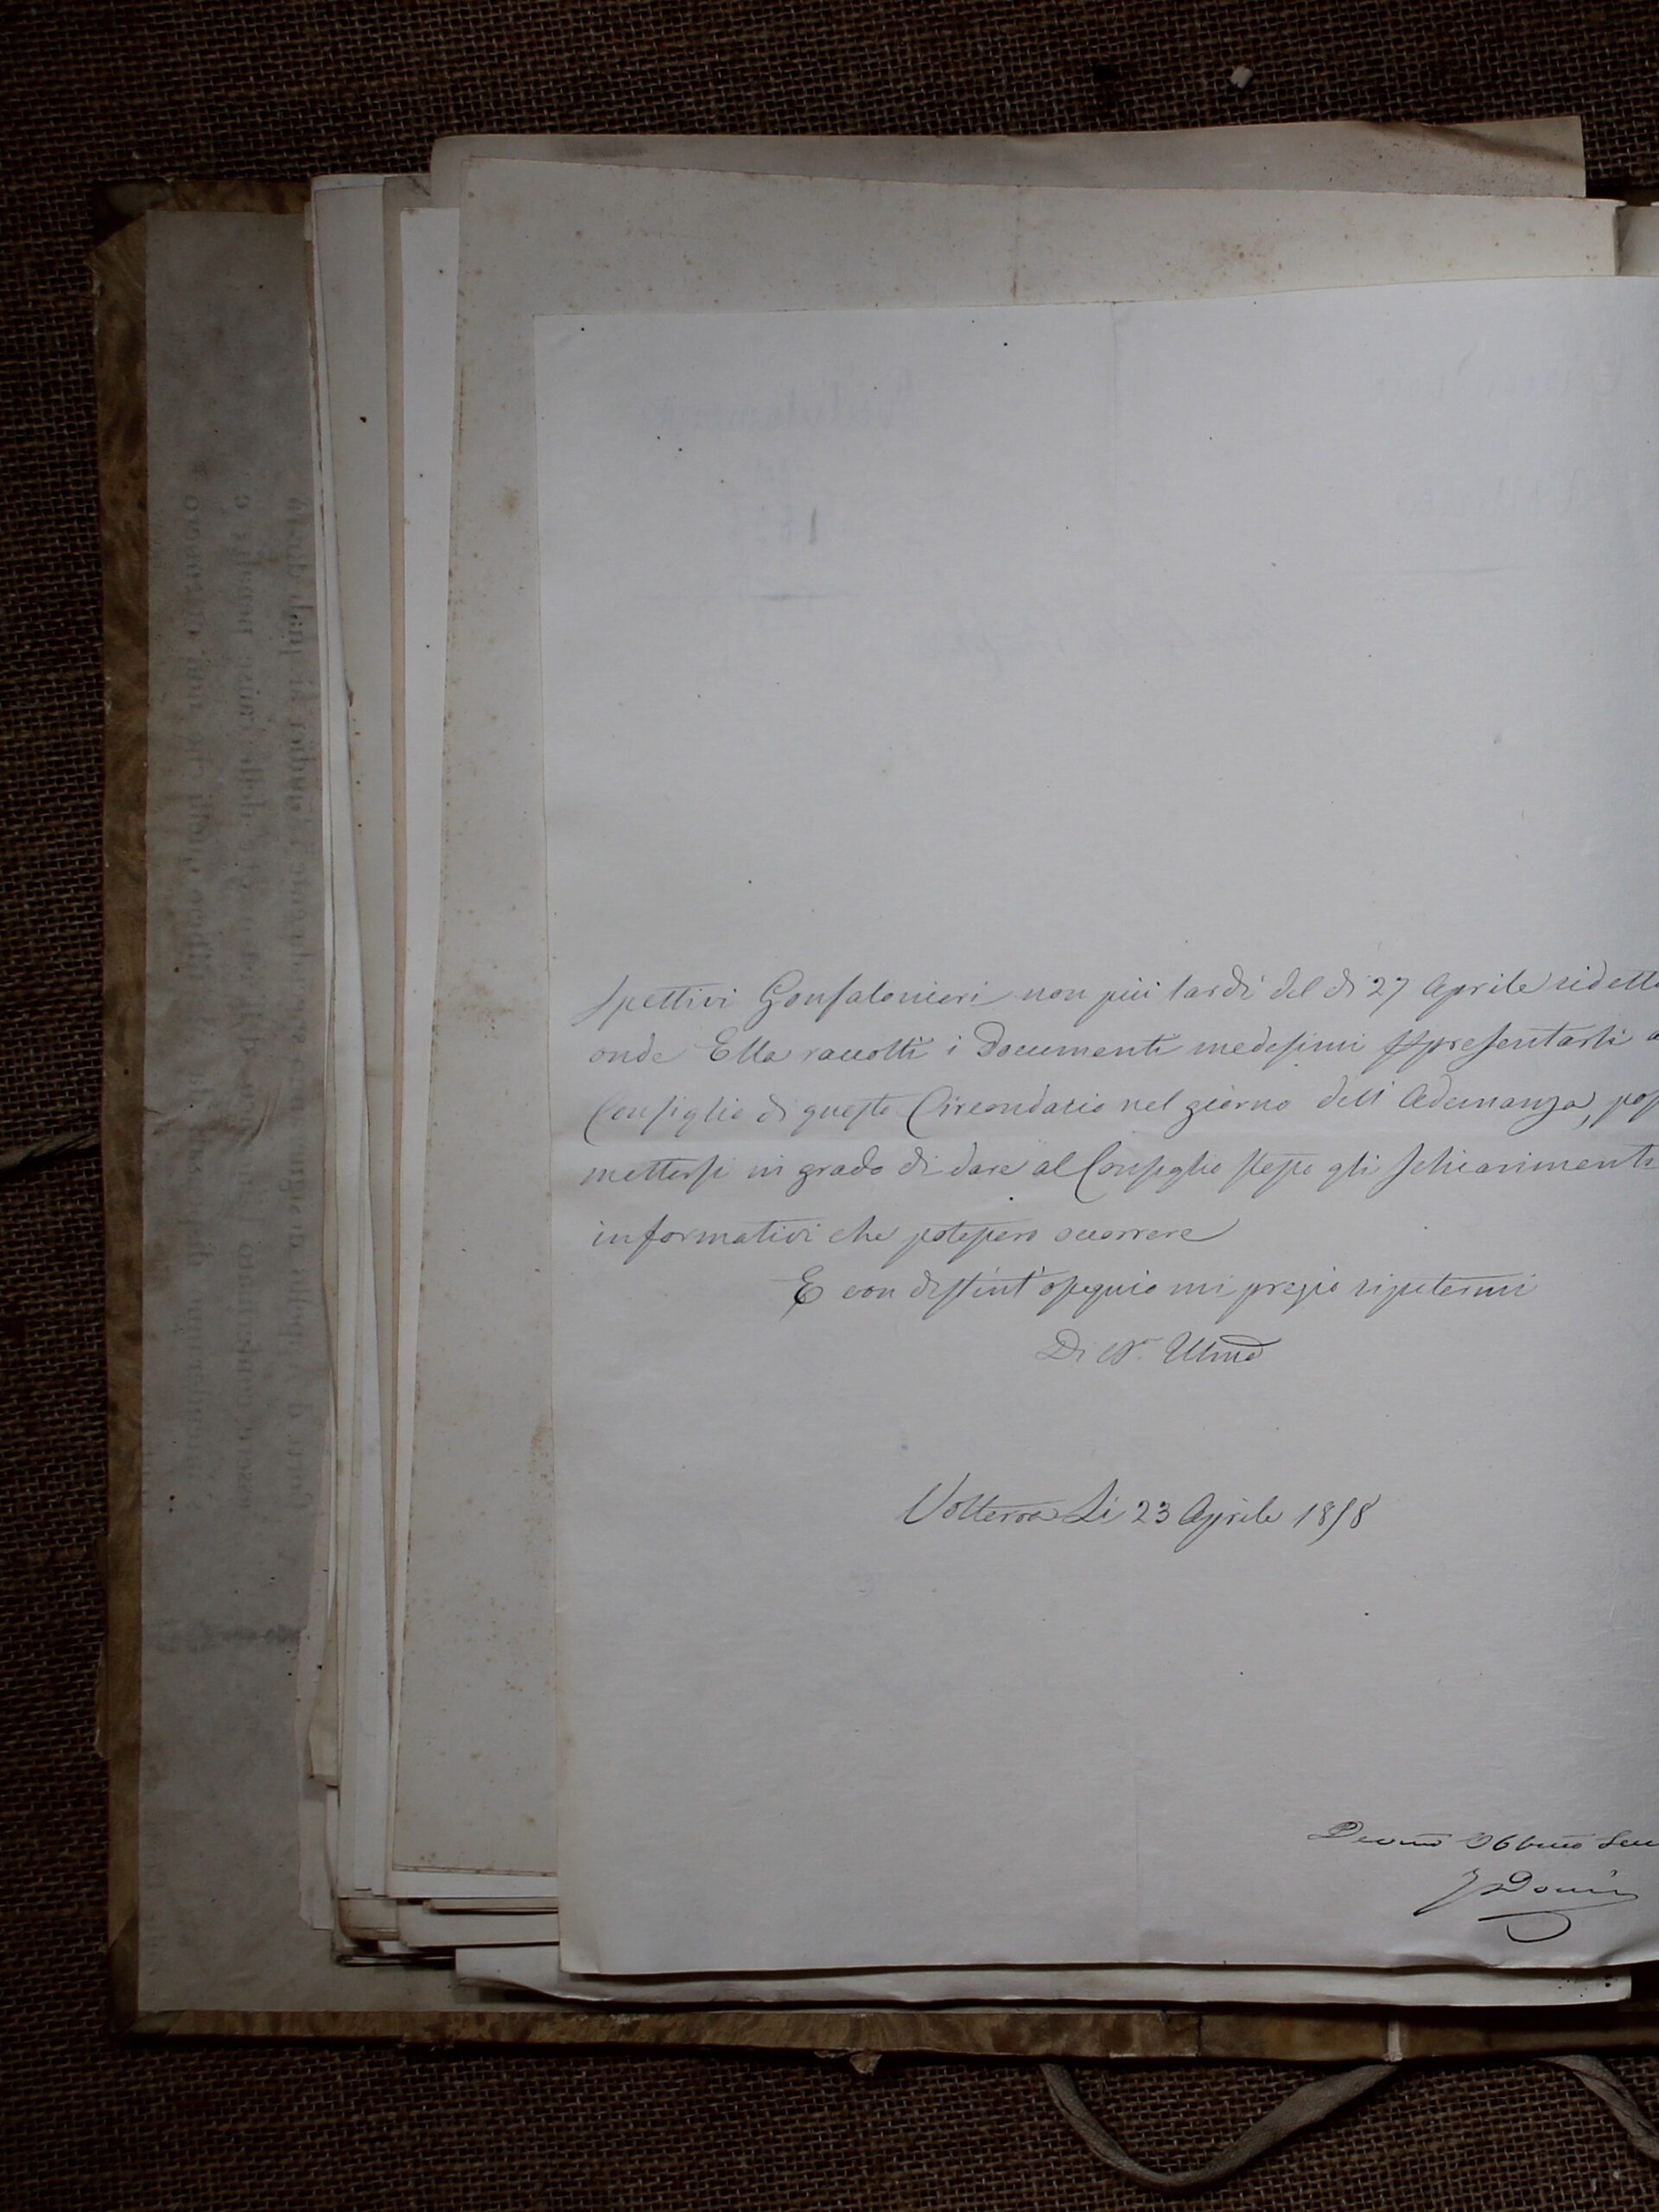 spettivi Gonfalonieri non più tardi del dì 27 Aprile sidetto
onde Ella raccolti i Documenti medesimi presentarli a
Consiglio di questo Circondario nel giorno dell'Adunanza, pos
mettersi in grado di dare al Consiglio stesso gli schiarimenti
informativi che potessero occorrere
E con distint'ossequio mi pregio ripetermi
Di V. Illma
Volterra Li 23 Aprile 1858